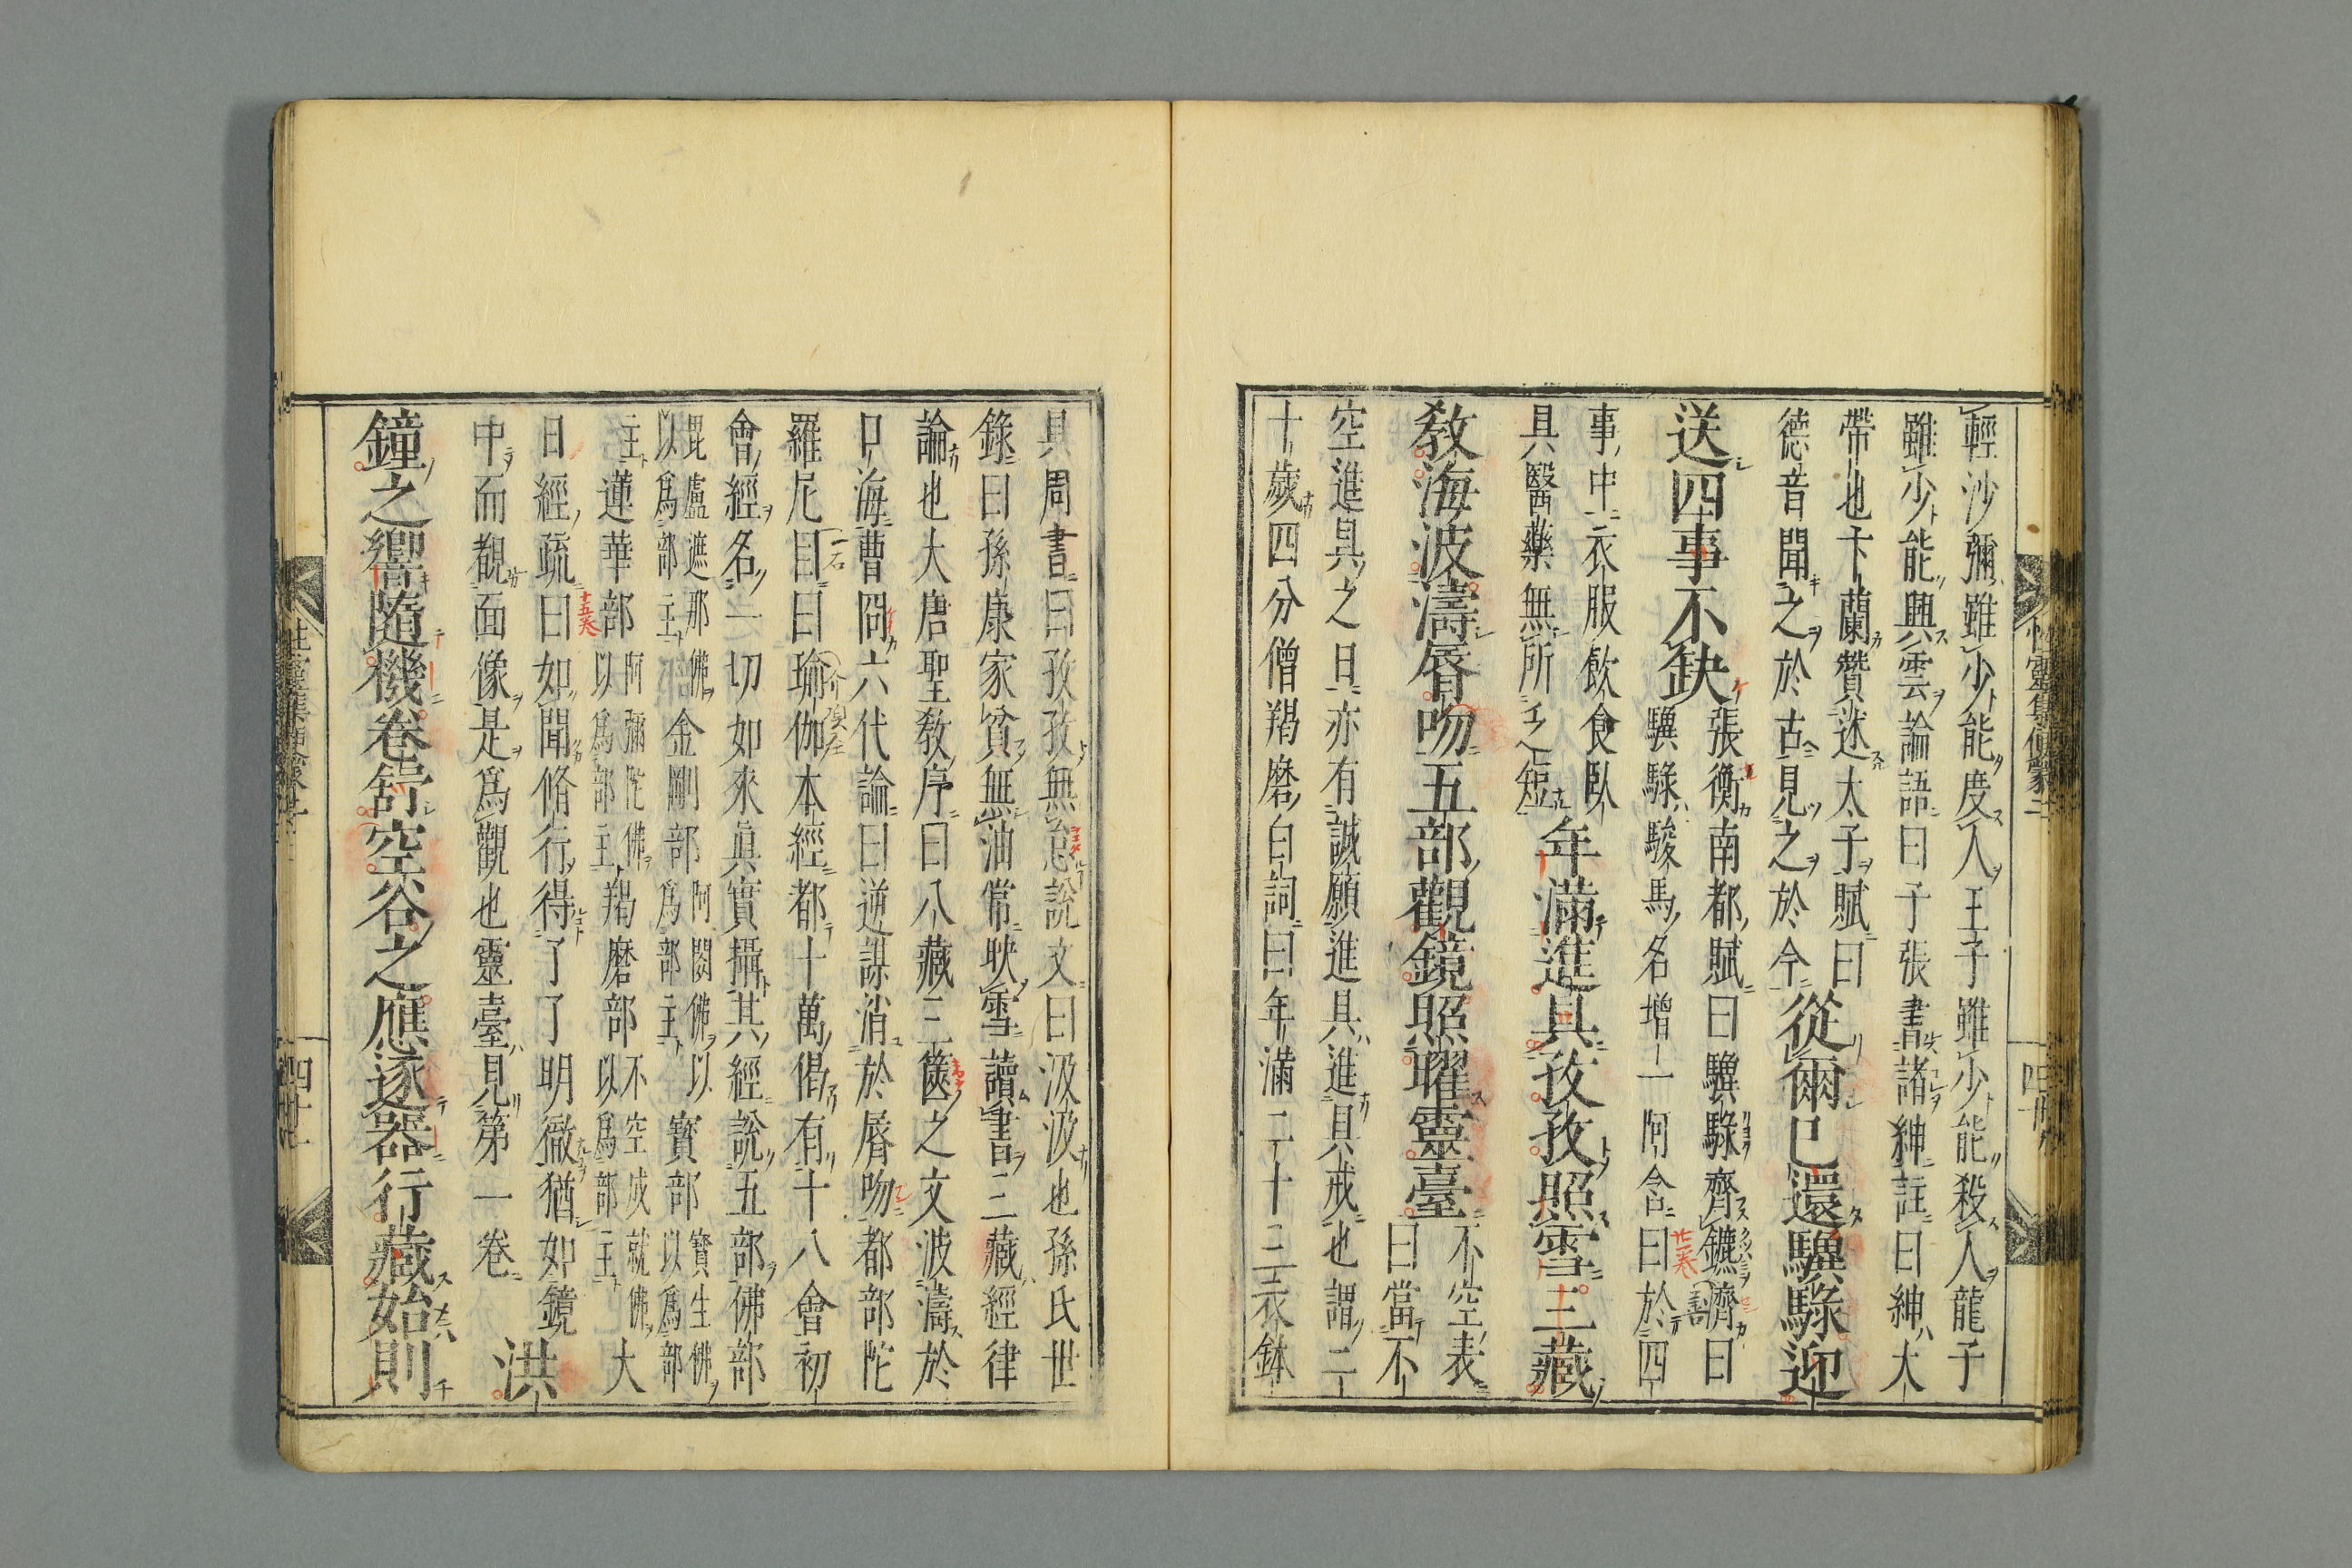 輕沙彌雖少能度人王子雖少能殺人龍子
雖少能興雲論語曰子張書諸紳註曰紳大
帶也卞蘭贊述太子賦曰
德音聞之於古見之於今從爾已還驥騄迎
送四事不缺張衡南都賦曰驥騄齊鑣濟曰
驥騄駿馬名增一阿含曰於四
事中衣服飲食臥
具醫藥無所乏短年滿進具孜孜照雪三藏
敎海波濤唇吻五部觀鏡照耀靈臺不空表
曰當不
空進具之日亦有誠願進具進具戒也謂二
十歲四分僧羯磨白詞曰年滿二十三衣鉢
具周書曰孜孜無怠說文曰汲汲也孫氏世
錄曰孫康家貧無油常映雪讀書三藏經律
論也大唐聖敎序曰八藏三篋之文波濤於
口海曹冏六代論曰逆謀消於唇吻都部陀
羅尼目曰瑜伽本經都十萬偈有十八會初
會經名一切如來眞實攝其經說五部佛部
毘盧遮那佛以爲部主金剛部阿閦佛以爲部主寶部寶生佛以爲部
主蓮華部阿彌陀佛以爲部主羯磨部不空成就佛以爲部主大
日經疏曰如聞脩行得了了明徹猶如鏡
中而覩面像是爲觀也靈臺見第一卷洪
鐘之響隨機卷舒空谷之應逐器行藏始則
性靈集便蒙二
四十
四十一